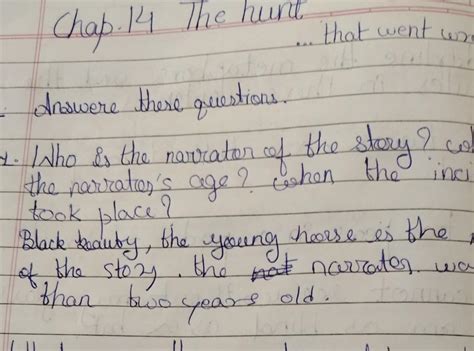 Chap.14 The hunt
... that went
Answere these questions.
1. Who is the narrator of the story?
the narrator's age? when the inci
took place?
Black beauty, the young horse is the
of the story. the narrator wa
than two years old.